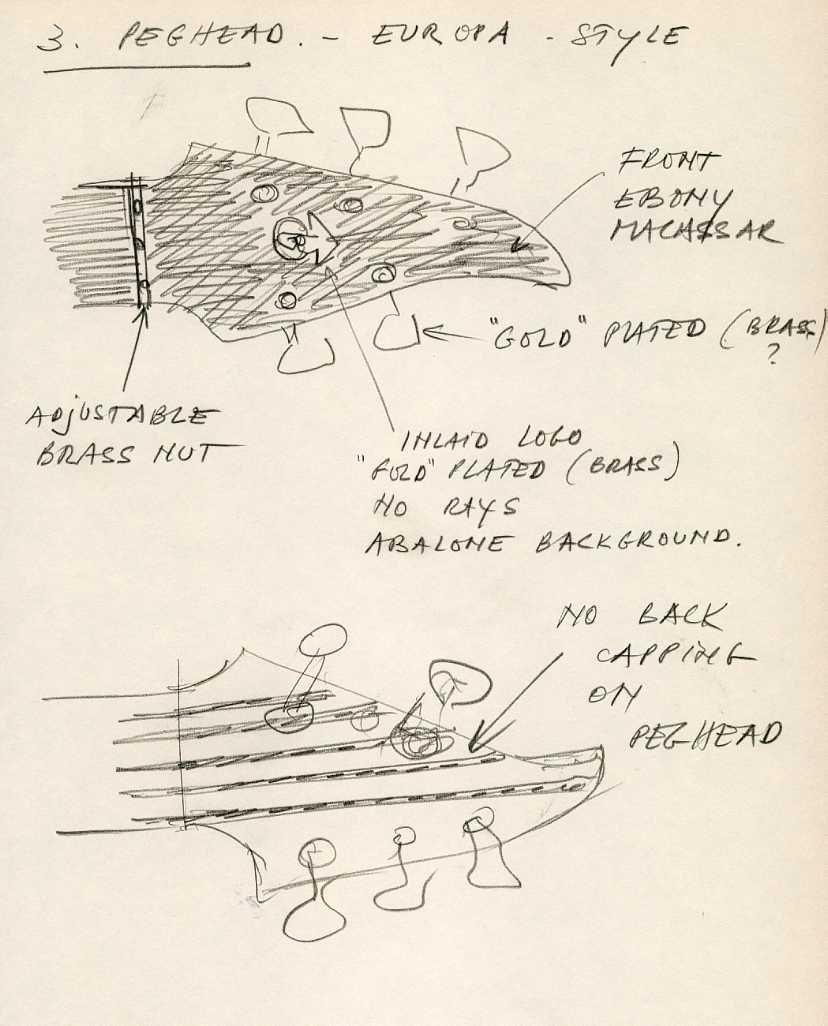 3. PEGHEAD. - EUROPA - STYLE
FRONT
EBONY
MACASSAR
"GOLD" PLATED (BRASS)
?
ADJUSTABLE
BRASS NUT
INLAID LOGO
"GOLD" PLATED (BRASS)
NO RAYS
ABALONE BACKGROUND.
NO BACK
CAPPING
ON
PEGHEAD